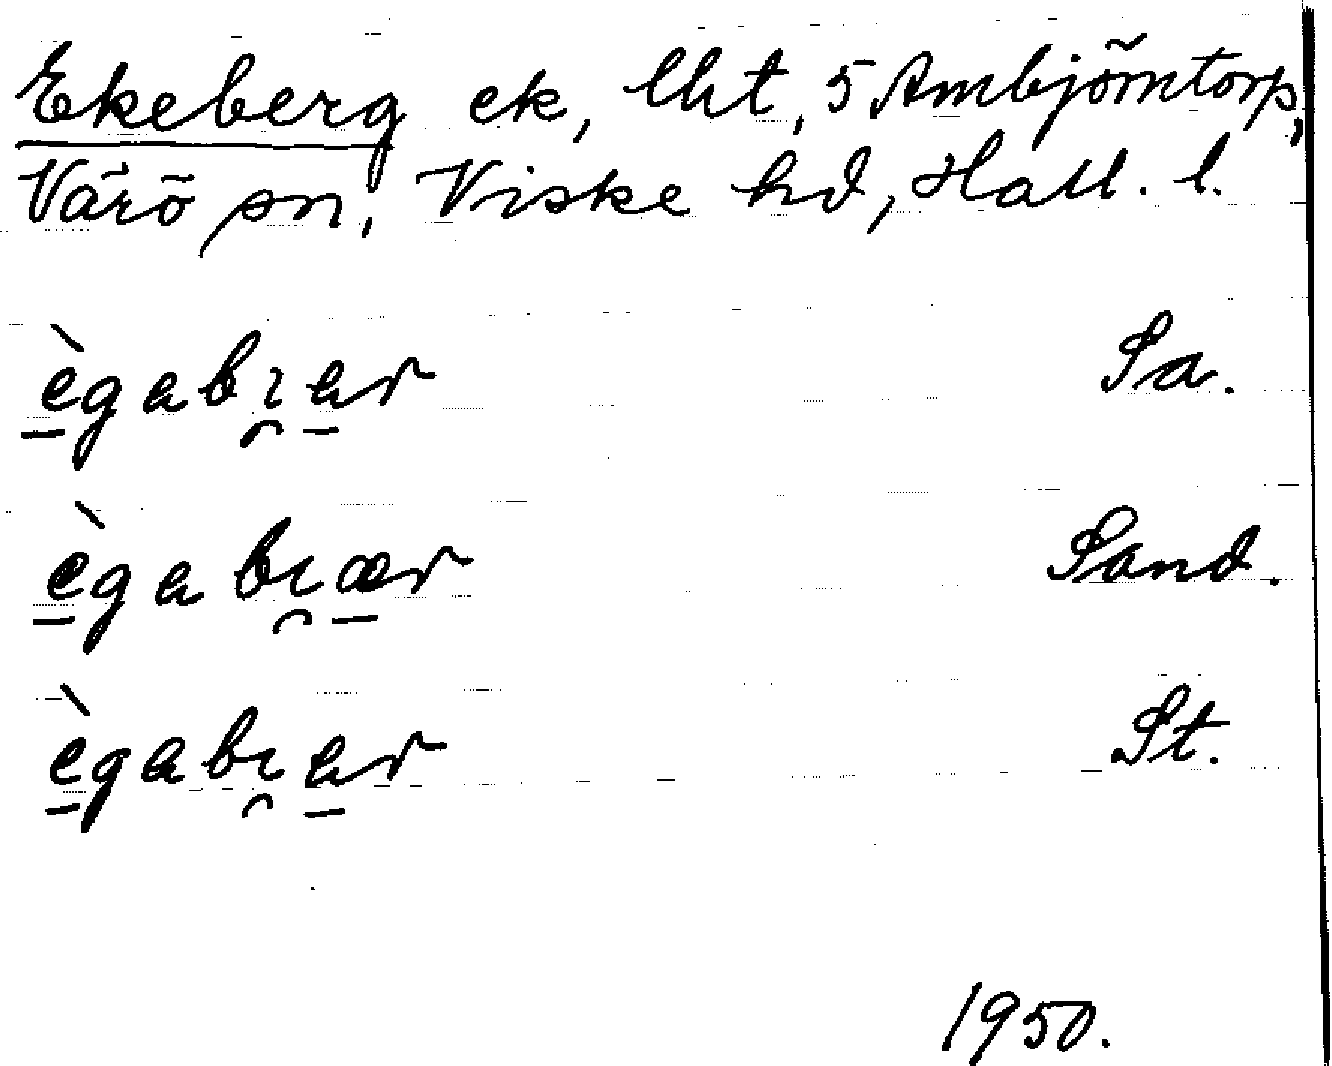 Ekeberg ek, lht, 5 Ambjörntorp,
Värö sn, Viske hd, Hall. l.
ègabɿ̯ar Sa.
ègabɿ̯ær Sand.
ègabɿ̯ar St.
1950.